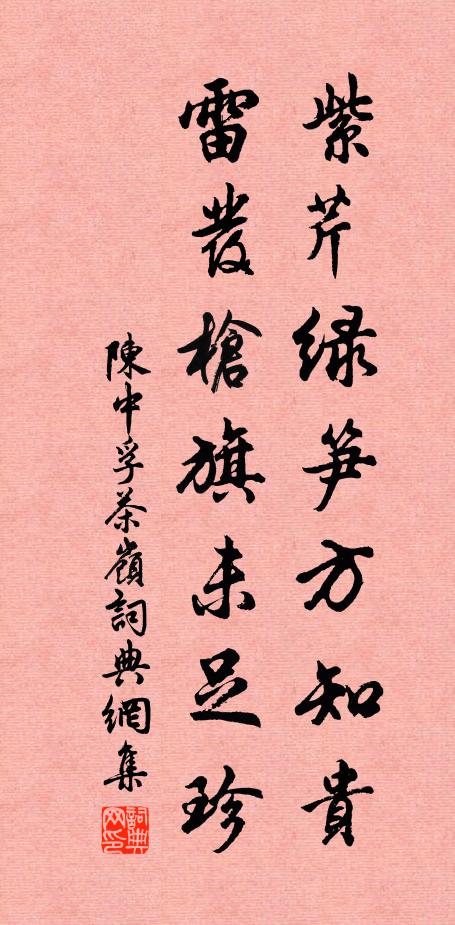 紫芹綠笋方知貴
雷發槍旗未足珍
陳中孚茶嶺詞典網集
詞典网印